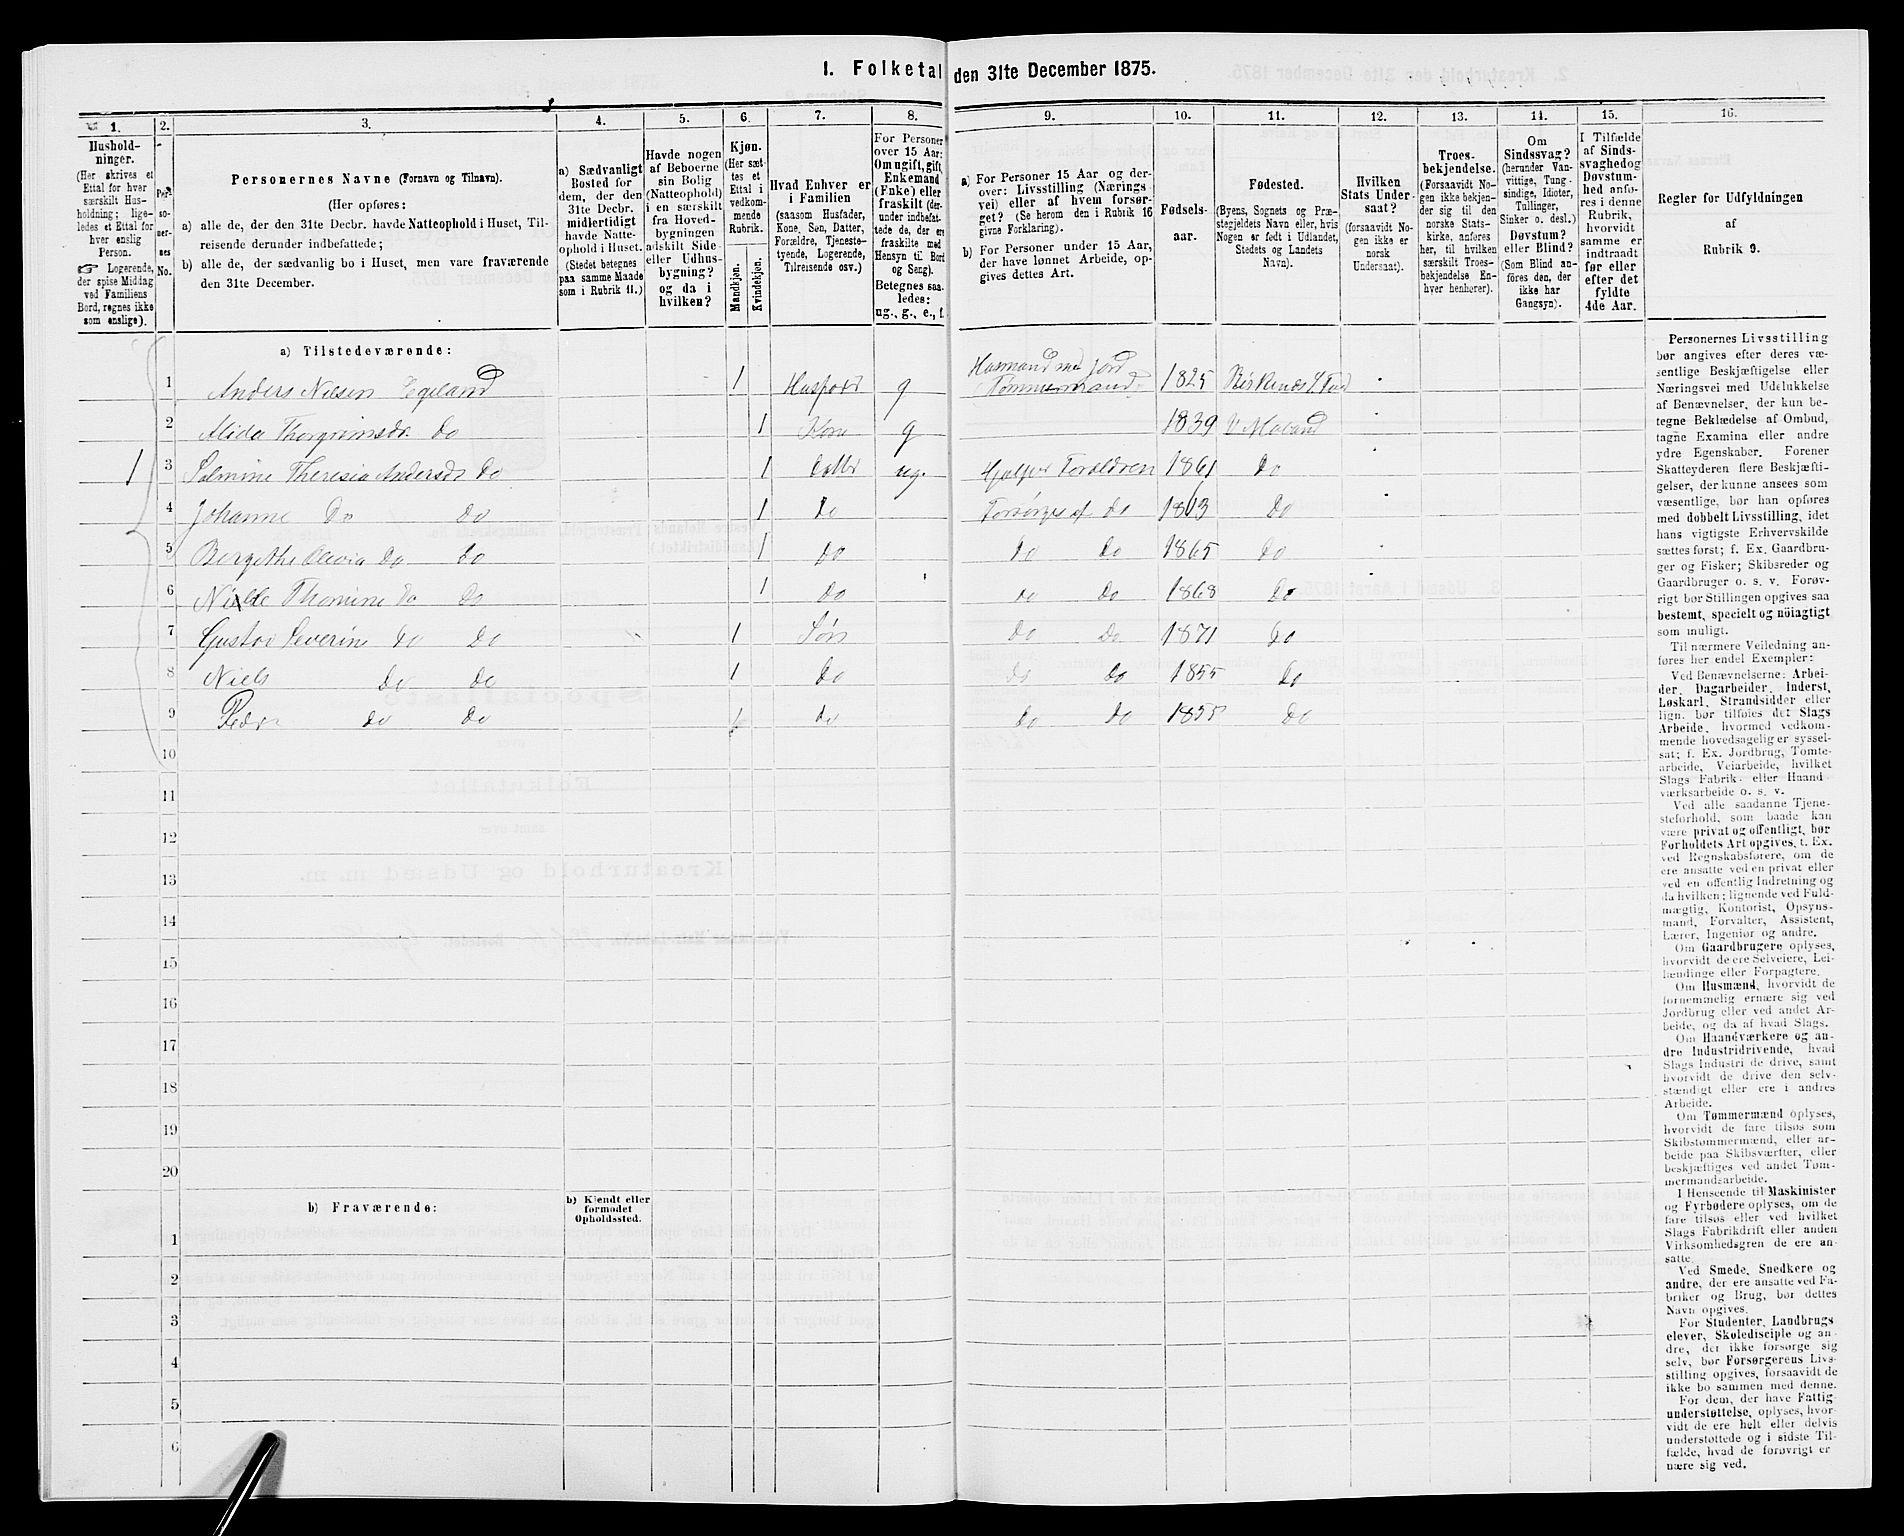 1. Folketal den 31te December 1875.
1. 2. 3. 4. 5. 6. 7. 8. 9. 10. 11. 12. 13. 14. 15. 16.
Hushold-
ninger.
(Her skrives et
Ettal for hver
særskilt Hus-
holdning; lige-
ledes et Ettal for
hver enslig
Person.
☞ Logerende,
der spise Middag
ved Familiens
Bord, regnes ikke
som enslige).
Per-
so-
ner-
nes
No.
Personernes Navne (Fornavn og Tilnavn).
(Her opføres:
a) alle de, der den 31te Decbr. havde Natteophold i Huset, Til-
reisende derunder indbefattede;
b) alle de, der sædvanlig bo i Huset, men vare fraværende
den 31te December.
a) Sædvanligt
Bosted for
dem, der den
31te Decbr.
midlertidigt
havde Natte-
ophold i Huset.
(Stedet betegnes
paa samme Maade
som i Rubrik 11.)
Havde nogen
af Beboerne
sin Bolig
(Natteophold)
i en særskilt
fra Hoved-
bygningen
adskilt Side-
eller Udhus-
bygning?
og da i
hvilken?
Kjøn.
(Her sæt-
tes et
Ettal i
vedkom-
mende
Rubrik.
Mandkjøn.
Kvindekjøn.
Hvad Enhver er
i Familien
(saasom Husfader,
Kone, Søn, Datter,
Forældre, Tjeneste-
tyende, Logerende,
Tilreisende osv.)
For Personer
over 15 Aar:
Om ugift, gift,
Enkemand
(Enke) eller
fraskilt (der-
under indbefat-
tede de, der ere
fraskilte med
Hensyn til Bord
og Seng).
Betegnes saa-
ledes:
ug., g., e., f.
a) For Personer 15 Aar og der-
over: Livsstilling (Nærings-
vei) eller af hvem forsør-
get? (Se herom den i Rubrik 16
givne Forklaring).
b) For Personer under 15 Aar,
der have lønnet Arbeide, op-
gives dettes Art.
Fødsels-
aar.
Fødested.
(Byens, Sognets og Præ-
stegjeldets Navn eller, hvis
Nogen er født i Udlandet,
Stedets og Landets
Navn).
Hvilken
Stats Under-
saat?
(forsaavidt No-
gen ikke er
norsk
Undersaat).
Troes-
bekjendelse.
(Forsaavidt No-
gen ikke bekjen-
der sig til den
norske Stats-
kirke, anføres
her, til hvilken
særskilt Troes-
bekjendelse En-
hver henhører).
Om
Sindssvag?
(herunder Van-
vittige, Tung-
sindige, Idioter,
Tullinger,
Sinker o. desl.)
Døvstum?
eller Blind?
(Som Blind an-
føres den, der
ikke har
Gangsyn).
I Tilfælde
af Sinds-
svaghed og
Døvstum-
hed anfø-
res i denne
Rubrik,
hvorvidt
samme er
indtraadt
før eller
efter det
fyldte
4de Aar.
Regler for Udfyldningen
af
Rubrik 9.
a) Tilstedeværende:
1 Anders Nilsen Egeland 1 Husfader g Husmand med Jord Tømmermand 1825 Birkenes
2 Alida Thorgrimsdr. do 1 Kone g 1839 V Moland
1 3 Salmine Theresia Andersdr do 1 Datter ug. Hjælper Foraldren 1861 do
4 Johanne do do 1 do Forsørges af do 1863 do
5 Bergethe Olevia do do 1 do do do 1865 do
6 Thomine do do 1 do do do 1868 do
7 Gustav Severin do do 1 Søn do do 1871 do
8 Niels do do 1 do do do 1855 do
9 Peder do do 1 do do do 1855 do
10
11
12
13
14
15
16
17
18
19
20
b) Fraværende:
b) Kjendt eller
formodet
Opholdssted.
1
2
3
4
5
6
Personernes Livsstilling
bør angives efter deres væ-
sentlige Beskjæftigelse eller
Næringsvei med Udelukkelse
af Benævnelser, der kun be-
tegne Beklædelse af Ombud,
tagne Examina eller andre
ydre Egenskaber. Forener
Skatteyderen flere Beskjæfti-
gelser, der kunne ansees som
væsentlige, bør han opføres
med dobbelt Livsstilling, idet
hans vigtigste Erhvervskilde
sættes først; f. Ex. Gaardbru-
ger og Fisker; Skibsreder og
Gaardbruger o. s. v. Forøv-
rigt bør Stillingen opgives saa
bestemt, specielt og nöiagtigt
som muligt.
Til nærmere Veiledning an-
føres her endel Exempler:
Ved Benævnelserne: Arbei-
der, Dagarbeider, Inderst,
Løskarl, Strandsidder eller
lign. bør tilføies det Slags
Arbeide, hvormed vedkom-
mende hovedsagelig er syssel-
sat; f. Ex. Jordbrug, Tømte-
arbeide, Veiarbeide, hvilket
Slags Fabrik- eller Haand-
værksarbeide o. s. v.
Ved alle saadanne Tjene-
steforhold, som baade kan
være privat og offentligt, bør
Forholdets Art opgives, t. Ex.
ved Regnskabsførere, om de
ere ansatte ved en privat eller
ved en offentlig Indretning og
da hvilken; lignende ved Fuld-
mægtig, Kontorist, Opsyns-
mand, Forvalter, Assistent,
Lærer, Ingeniør og andre.
Om Gaardbrugere oplyses,
hvorvidt de ere Selveiere, Lei-
lændinge eller Forpagtere.
Om Husmænd, hvorvidt de
fornemmelig ernære sig ved
Jordbrug eller ved andet Ar-
beide, og da af hvad Slags.
Om Haandværkere og an-
dre Industridrivende, hvad
Slags Industri de drive, samt
hvorvidt de drive den selv-
stændigt eller ere i andres
Arbeide.
Om Tømmermænd oplyses,
hvorvidt de fare tilsøs som
Skibstømmermænd, eller ar-
beide paa Skibsværfter, eller
beskjæftiges ved andet Tøm-
mermandsarbeide.
I Henseende til Maskinister
og Fyrbødere oplyses, om de
fare tilsøs eller ved hvilket
Slags Fabrikdrift eller anden
Virksomhedsgren de ere an-
satte.
Ved Smede, Snedkere og
andre, der ere ansatte ved Fa-
briker og Brug, bør dettes
Navn opgives.
For Studenter, Landbrugs
elever, Skoledisciple og an-
dre, der ikke forsørge sig
selv, bør Forsørgerens Livs-
stilling opgives, forsaavidt de
ikke bo sammen med denne.
For dem, der have Fattig-
understøttelse, oplyses, hvor-
vidt de ere helt eller delvis
understøttede og i sidste Til-
fælde, hvad de forøvrigt er-
nære sig ved.